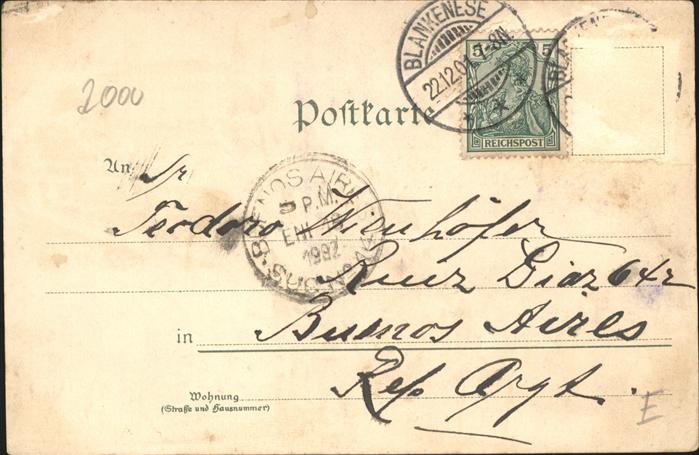 BLANKENESE
22.12.01. 7-8N.
5 5
REICHSPOST
BLANKENE
2000
Postkarte
An Sr
BUENOS AIRES
5 P.M.
1902
Teodoro
Ruiz Diaz 642
in Buenos Aires
Wohnung
(Straße und Hausnummer)
Rep Argt.
E